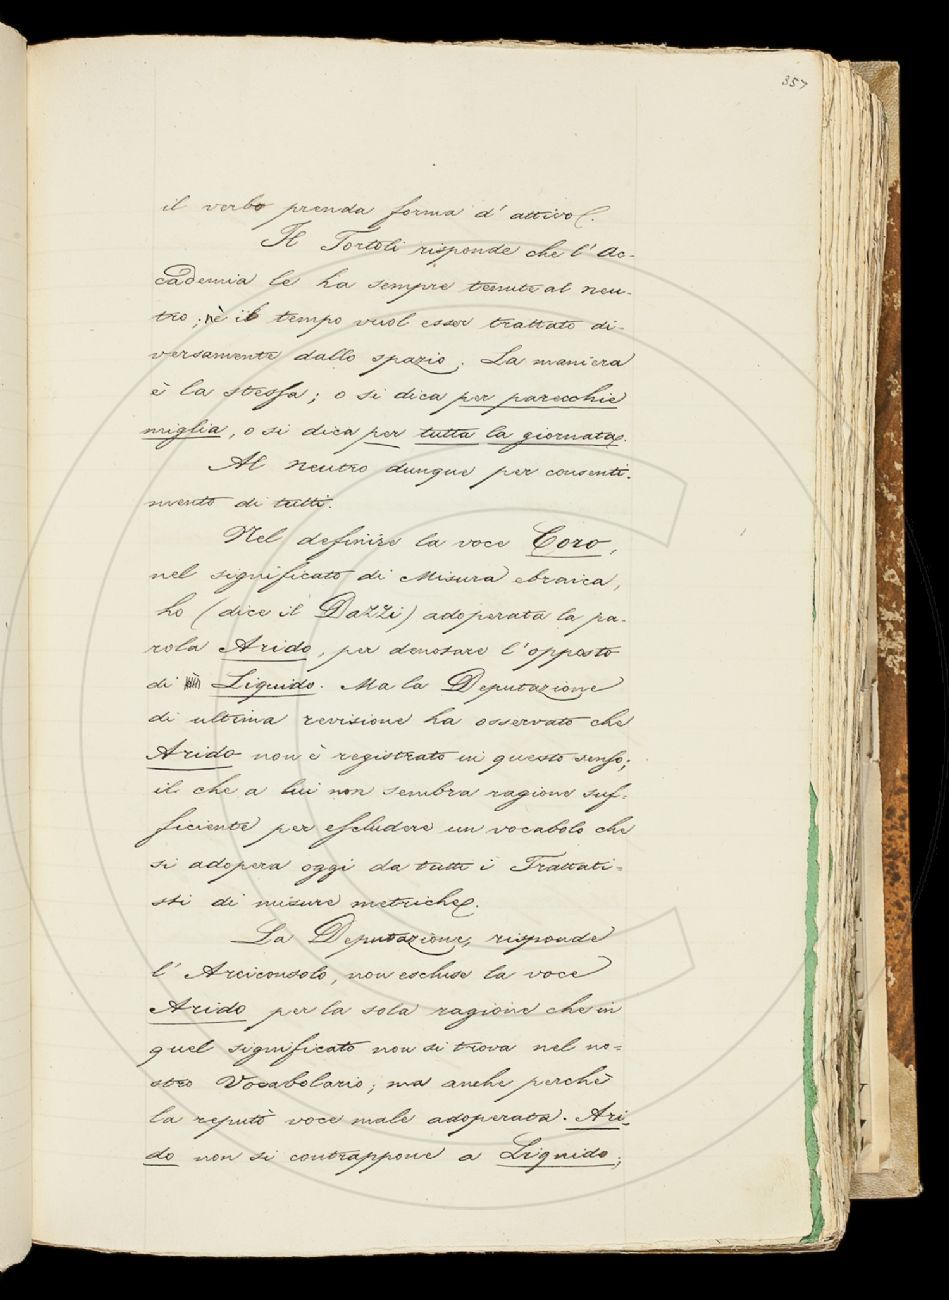 357
il verbo prenda forma d'attivo.
Il Tortoli risponde che l'Ac-
cademia le ha sempre tenute al neu-
tro; nè il tempo vuol esser trattato di-
versamente dallo spazio. La maniera
è la stessa; o si dica per parecchie
miglia, o si dica per tutta la giornata.
Al neutro dunque per consenti-
mento di tutti.
Nel definire la voce Coro,
nel significato di Misura ebraica,
ho (dice il Dazzi) adoperata la pa-
rola Arido, per denotare l'opposto
di Liquido. Ma la Deputazione
di ultima revisione ha osservato che
Arido non è registrato in questo senso;
il che a lui non sembra ragione suf-
ficiente per escludere un vocabolo che
si adopera oggi da tutti i Trattati-
sti di misure metriche.
La Deputazione, risponde
l'Arciconsolo, non eschise la voce
Arido per la sola ragione che in
quel significato non si trova nel no-
stro Vocabolario; ma anche perchè
la reputò voce male adoperata. Ari-
do non si contrappone a Liquido;